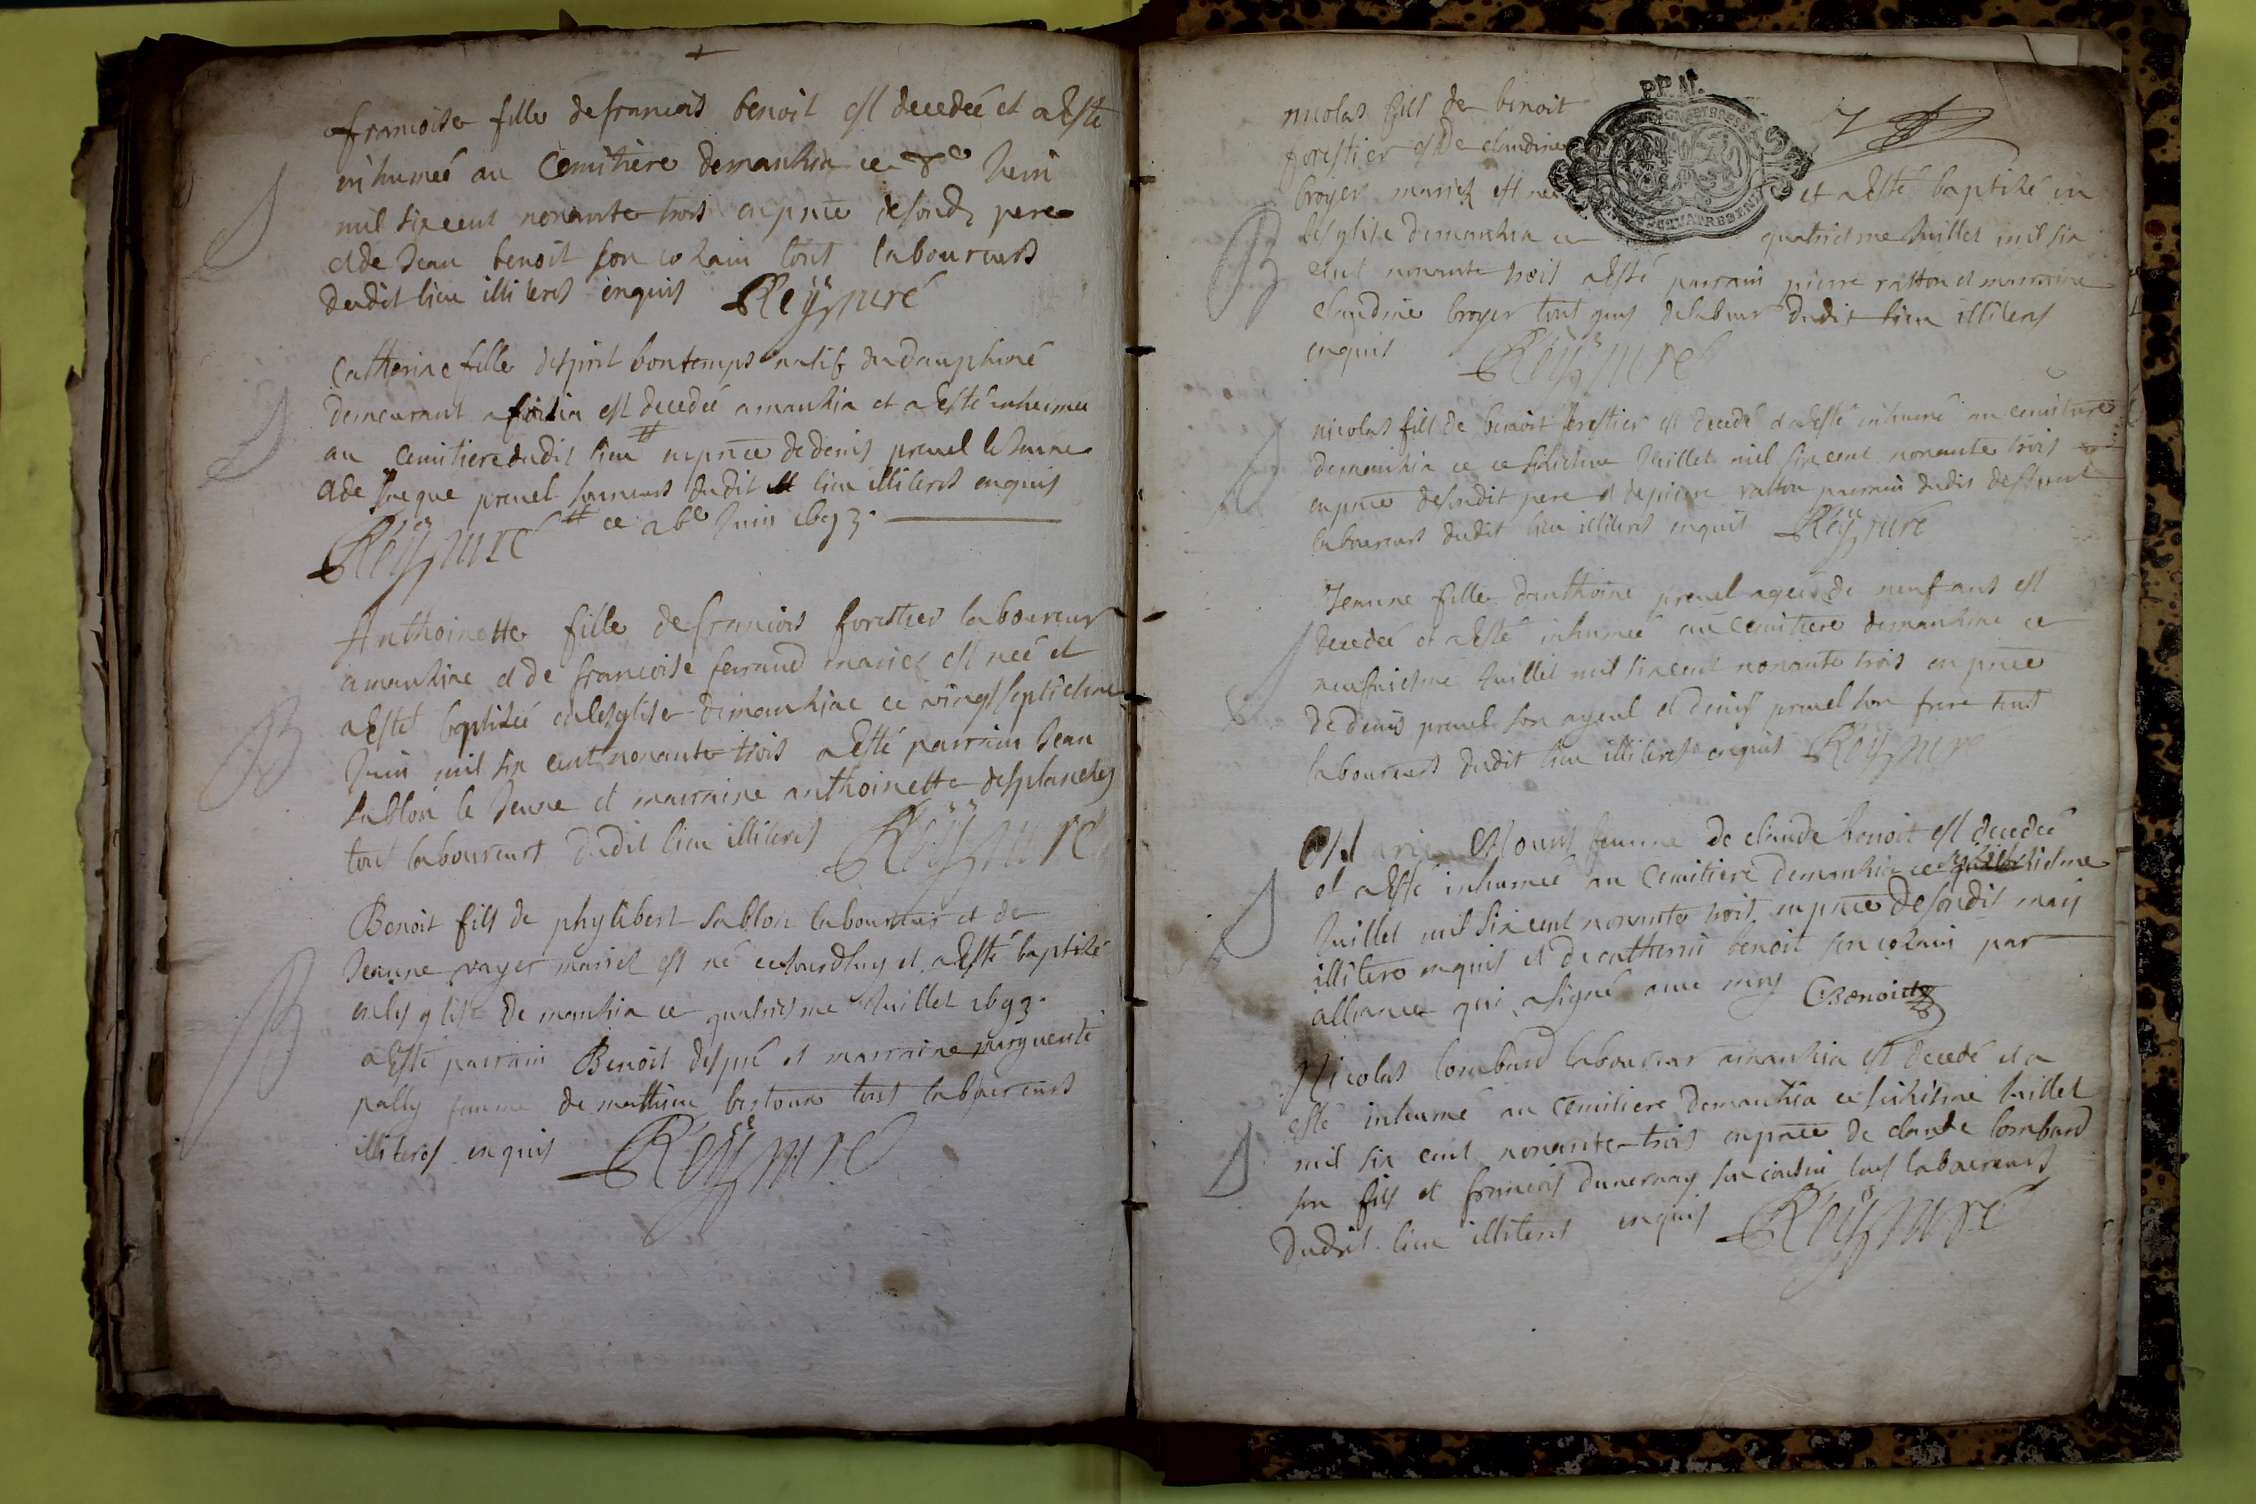 francoise fille de francois benoit est decedeé et a Esté
inhumeé au Cemitiere de manhia ce Juin
mil six cent nonante trois en pnce pere
et de Jean benoit son tout laboureurs
dudit lieu illiterés enquis Reÿ curé
Catherine fille bontemps natif du dauphiné
demeurant a est decedeé a manhia et a Esté inhumeé
au Cemitiere dudit lieu # en pnce de denis preuel le Jeune
et de preuel dudit lieu illiterés enquis
Reÿ curé # ce Juin 1693.
Anthoinette fille de francois forestier laboureur
a manhiac et de francoise ferraud mariez est neé et
a Esté baptiseé en lesglise de manhiac ce vingt septiesme
Juin mil six cent nonante trois a Esté parrain Jean
sablon le Jeune et marraine anthoinette desplanches
tout laboureurs dudit lieu illiterés Reÿ curé
Benoit fils de phylibert sablon laboureur et de
Jeanne mariez est né et a Esté baptisé
en lesglise de manhia ce quatriesme Juillet 1693.
a Esté parrain Benoit despré et marraine marguerite
pally femme de mathieu tout laboureurs
illiterés enquis Reÿ curé
PP. M.
nicolas fils de benoit
forestier et de claudine
broyer mariez est né et a Esté baptisé en
lesglise de manhia ce quatriesme Juillet mil six
cent nonante trois a Esté parrain pierre ratton et marraine
claudine broyer tout gens de labeur dudit lieu illiterés
enquis Reÿ curé
nicolas fils de benoit forestier est decedé et a Esté inhumé au cemitiere
de manhia ce Juillet mil six cent nonante trois
en pnce dudit pere et de pierre ratton parrain dudit deffunct
laboureurs dudit lieu illiterés enquis Reÿ curé
Jeanne fille d'anthoine preuel ageé de neuf ans est
decedeé et a Esté inhumeé au Cemitiere de manhia ce
neufuiesme Juillet mil six cent nonante trois en pnce
de denis preuel son ayeul et denis preuel son frere tout
laboureurs dudit lieu illiterés enquis Reÿ curé
femme de claude benoit est decedeé
et a Esté inhumeé au Cemitiere de manhia ce
Juillet mil six cent nonante trois en pnce de sondit mary
illiteré enquis et de catherin benoit son par
alliance qui a signé auec moy CBenoit
Nicolas lombard laboureur a manhia est decedé et a
esté inhumé au Cemitiere de manhia ce Juillet
mil six cent nonante trois en pnce de claude lombard
son fils et francois son cousin tous laboureurs
dudit lieu illiterés enquis Reÿ curé